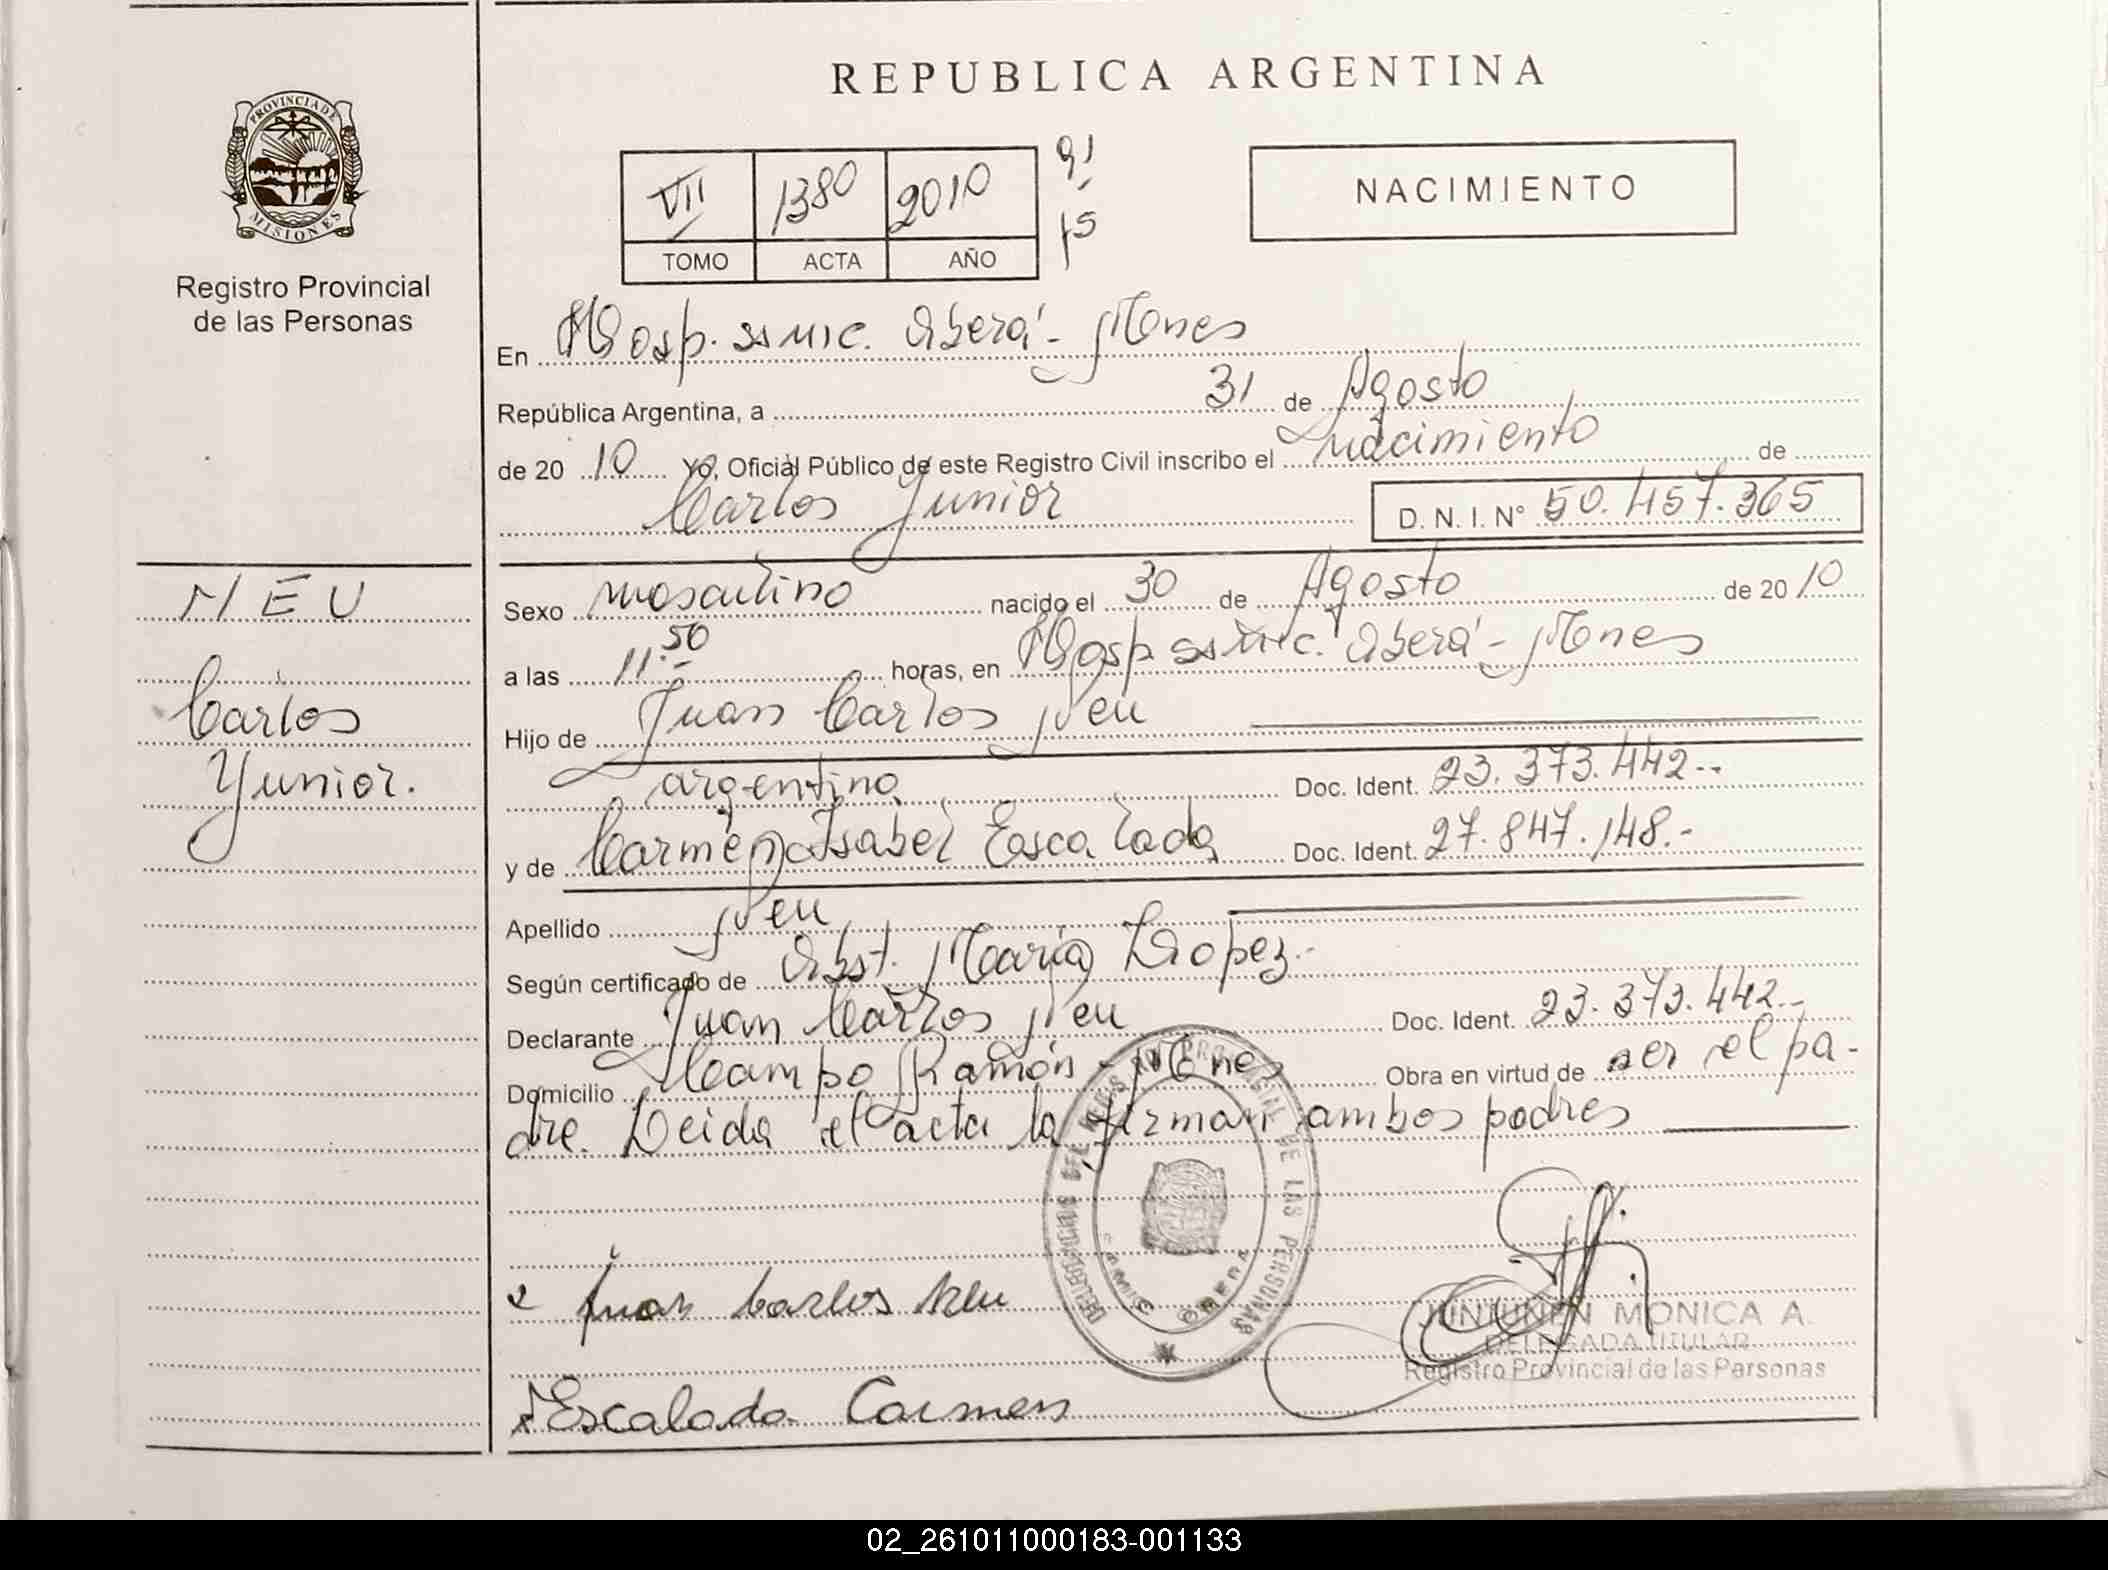 PROVINCIA DE
MISIONES
Registro Provincial
de las Personas
REPUBLICA ARGENTINA
VII 1380 2010
TOMO ACTA AÑO
91
15
NACIMIENTO
En Hosp. ss mic. Oberá - Mnes
República Argentina, a 31 de Agosto
de 20 10 Yo, Oficial Público de este Registro Civil inscribo el nacimiento de
Carlos Yunior D. N. I. N° 50.457.365
NEU
Carlos
Yunior.
Sexo masculino nacido el 30 de Agosto de 2010
a las 11.50 horas, en Hosp ss mic. Oberá - Mnes
Hijo de Juan Carlos Neu
argentino Doc. Ident. 23.373.442.-
y de Carmen Isabel Escalada Doc. Ident. 27.847.148.-
Apellido Neu
Según certificado de Obst. María Lopez.-
Declarante Juan Carlos Neu Doc. Ident. 23.373.442.-
Domicilio Campo Ramón - Mnes Obra en virtud de ser el pa-
dre. Leida el acta la firman ambos padres
DEL REGISTRO PROVINCIAL DE LAS PERSONAS
OBERA
Juan Carlos Neu
Escalada Carmen
JUNJUNEN MONICA A.
DELEGADA TITULAR
Registro Provincial de las Personas
02_261011000183-001133